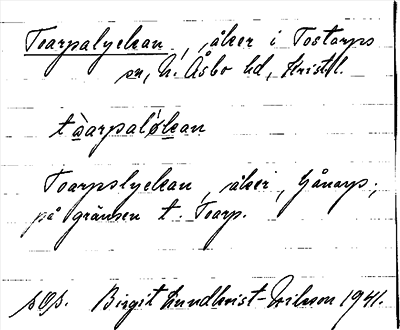 Toarpalyckan, åker i Tostarps
sn, N. Åsbo hd, Kristl.
tàarpaløkan
Toarpslyckan, åker, Gånarp,
på gränsen t. Toarp.
sOp. Birgit Lundkvist-Nilsson 1941.